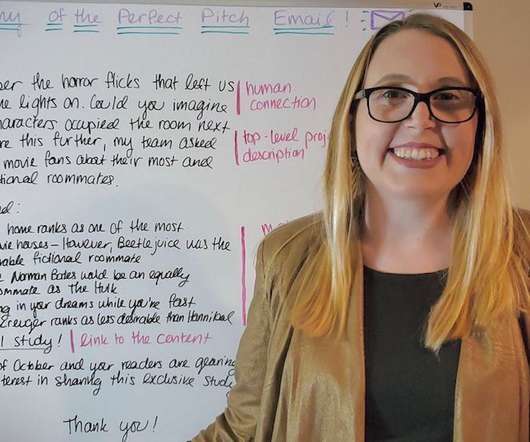 of the Perfect Pitch Email!
the horror flicks that left us
lights on. Could you imagine
characters occupied the room next
this further, my team asked
movie fans about their most and
roommates.
human
connection
top-level
description
home ranks as one of the most
houses - However, Beetlejuice was the
fictional roommate
Norman Bates would be an equally
as the Hulk
in your dreams while you're fast
ranks as less desirable than Hannibal
study!
link to the content
of October and your readers are gearing
in sharing this exclusive study
Thank you!